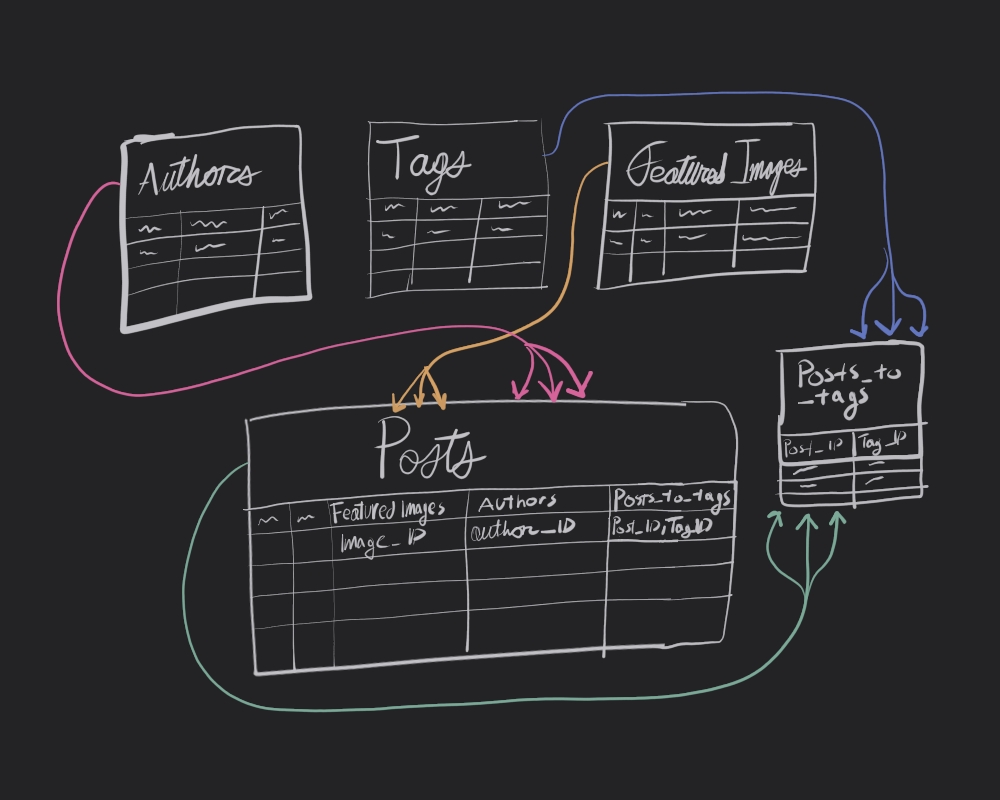 Authors
Tags
Featured Images
Posts_to
_tags
Post_ID
Tag_ID
Posts
Featured Images
Authors
Posts_to_tags
Image_ID
author_ID
Post_ID, Tag_ID